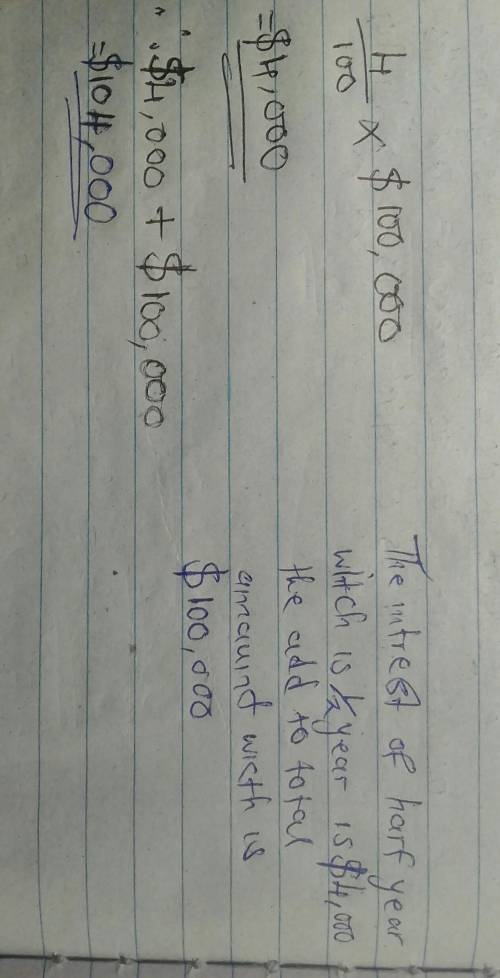 4/100 × $100,000
=$4,000
∴ $4,000 + $100,000
=$104,000
The intrest of harf year
witch is ½ year is $4,000
the add to total
amaund wicth is
$100,000